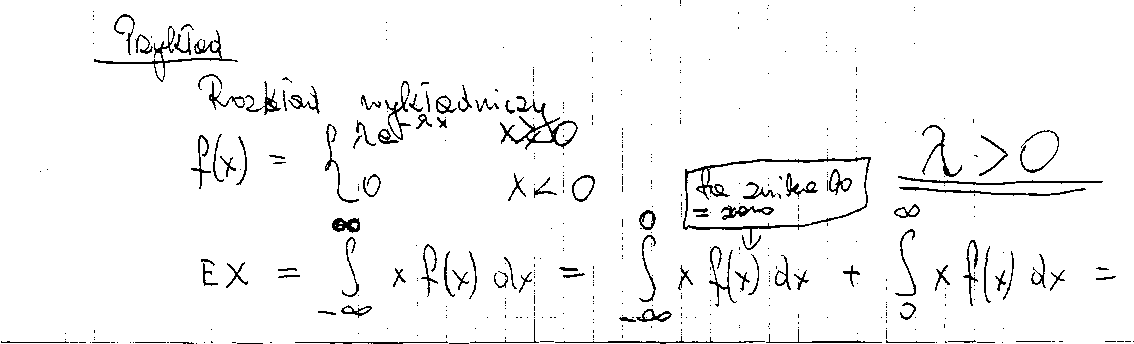 Przykład
Rozkład wykładniczy
f(x) = { λe^{-λx} x≥0
0 x<0
λ>0
= zero
EX = ∫_{-∞}^{∞} x f(x) dx = ∫_{-∞}^{0} x f(x) dx + ∫_{0}^{∞} x f(x) dx =